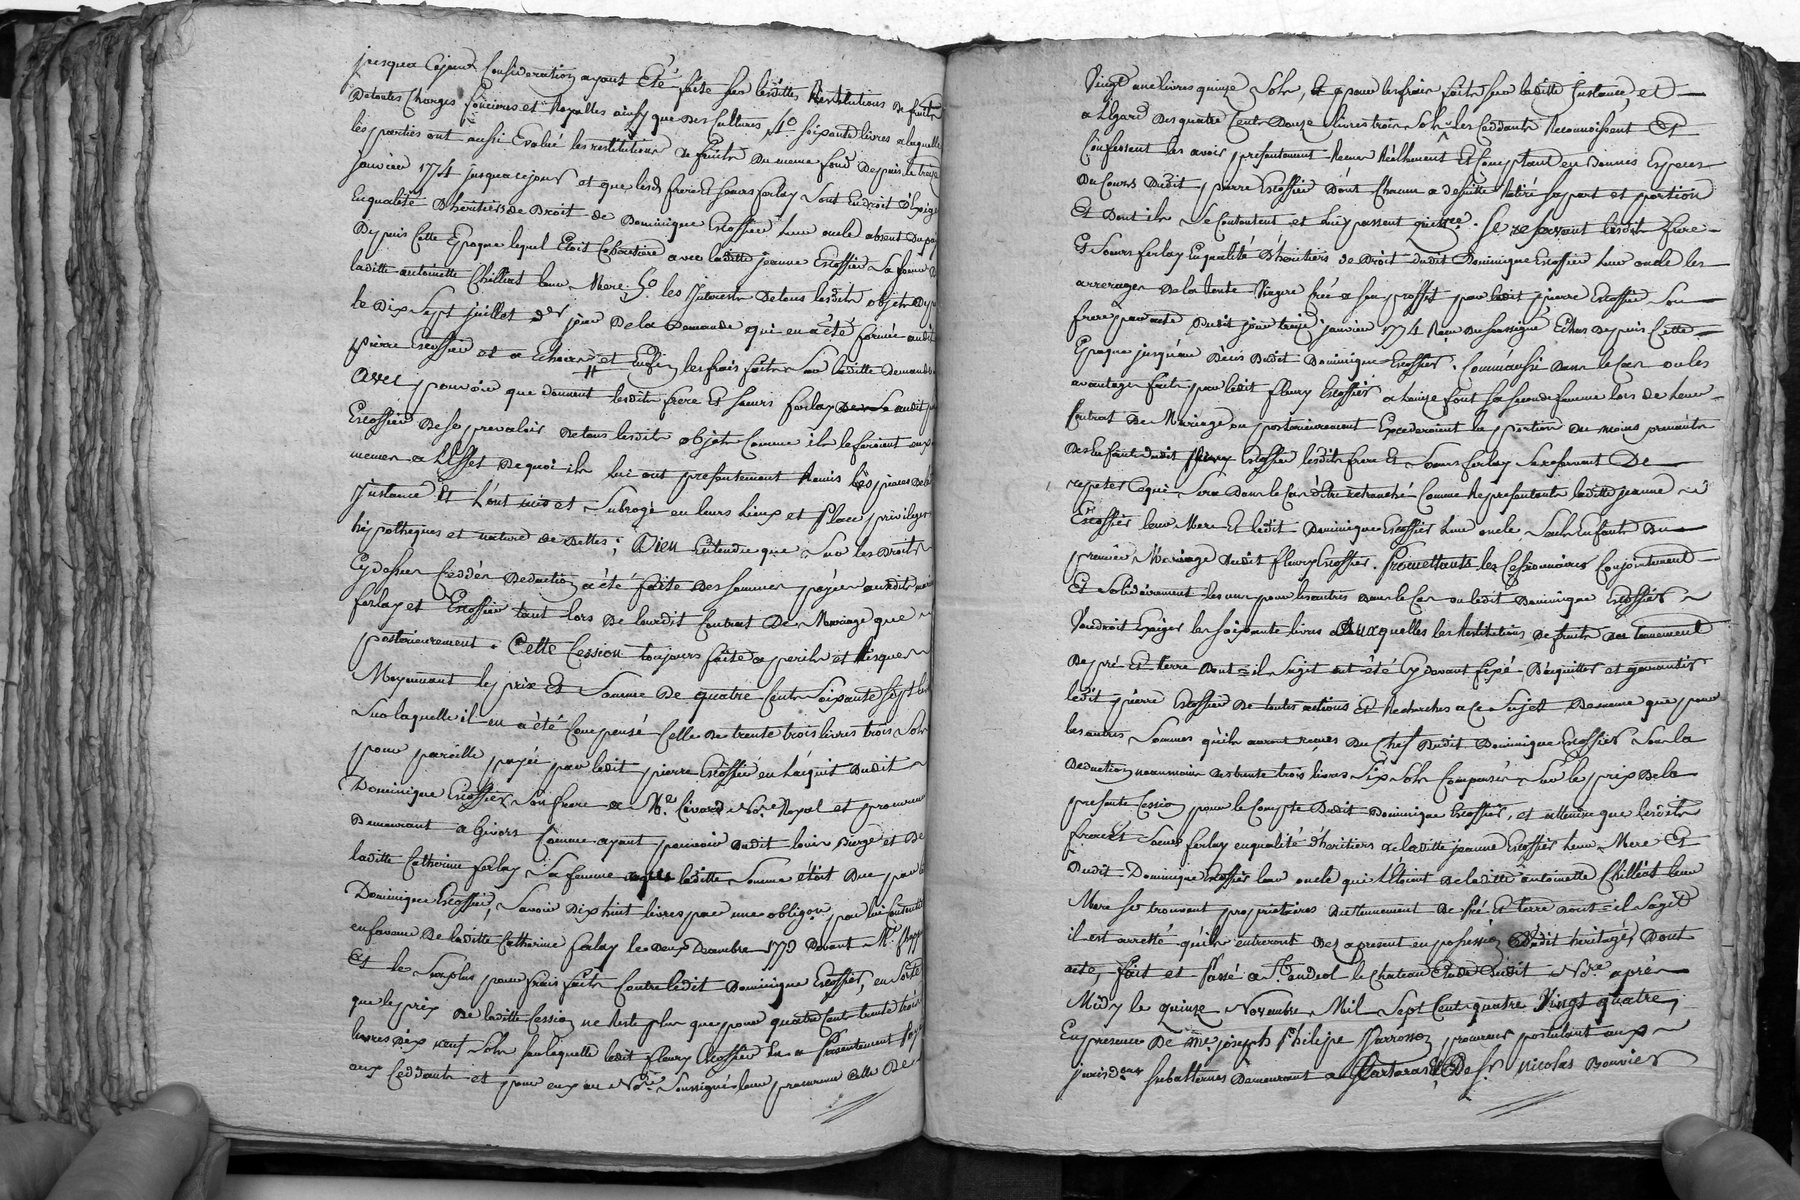 jusqua cejour Consideration ayant Eté faite sur lesdittes Restitutions de fruits
Detoutes Charges foncieres et Royalles ainsy que des Cultures 4.o soixante livres alaquelle
les parties ont aussi Evalué les restitutions de fruits Du meme fond Depuis le treize
janvier 1774 jusqua cejour et que lesd frere Et soeurs ferlay sont Endroit d'Exiger
Enqualité D'heritiers de Droit de Dominique Escoffier leur oncle absent Du païs
Depuis Cette Epoque lequel Etoit Cohéritiere avec laditte jeanne Escoffier Sa soeur de
laditte antoinette Chilliat leur Mere. 5.o les Interets Detous lesdits objets Depuis
le Dix Sept juillet der jour De la Demande qui en a été formée audit
pierre Escoffier et a Echoir et Enfin les frais faits sur laditte demande
avec pouvoir que donnent lesdits frere Et soeurs ferlay audit pierre
Escoffier de se prevaloir Detous lesdits objets Comme ils le feroient eux
memes a L'effet De quoi ils lui ont presentement Remis les pieces de la
Instance Et L'ont mis et Subrogé en leurs Lieux et Place, privileges
hipotheques et nature de Dettes; Bien Entendu que Sur les Droits
Cydessus Ceddés Deduction a été faite Des sommes payées auxdits mariés
ferlay et Escoffier tant lors De leurdit Contrat De Mariage que
posterieurement. Cette Cession toujours faite a perils et Risques
Moyennant les prix Et Somme De quatre Cent Soixante sept livres
Sur laquelle il en a été Compensé Celle De trente trois livres trois Sols
pour pareille payée par ledit pierre Escoffier en L'acquit Dudit
Dominique Escoffier Son frere a M.e Civard No.re Royal et procureur
Demeurant a Givors Comme ayant pouvoir Dudit louis Burge et De
laditte Catherine ferlay Sa femme laditte Somme étoit Due par led
Dominique Escoffier, Savoir Dix huit livres par une obligon par lui Consentie
enfaveur De laditte Catherine ferlay le Deux Decembre 1779 Devant M.e
Et le Surplus pour frais faits Contre ledit Dominique Escoffier, en Sorte
que le prix De laditte Cession ne Reste plus que pour quatre Cent trente trois
livres Dix neuf Sols sur laquelle ledit fleury Escoffier En a Presentement payé
aux Ceddants et pour eux au No.re Soussigné leur procureur Celle De
Vingt une livres quinze Sols, pour les frais faits sur laditte Instance, et
a L'égard Des quatre Cents Douze livres trois Sols les Ceddants Reconnoissent Et
Confessent les avoir presentement Reçu Réellement Et Comptant en Bonnes Especes
Du Cours Dudit pierre Escoffier Dont Chacun a desuitte Retiré Sa part et portion
Et Dont ils Se Contentent et lui passent quitt.ce. Se reservant lesdits frere
Et Soeurs ferlay Enqualité D'heritiers de Droit dudit Dominique Escoffier leur oncle les
arrerages De la Rente Viagere Créé a son proffit par ledit pierre Escoffier Son
frere par acte Dudit jour treize janvier 1774 Reçu Du Soussigné Echus Depuis Cette
Epoque jusqu'au Décés Dudit Dominique Escoffier. Comm'aussi Dans le Cas ou les
avantages faits par ledit fleury Escoffier a Louise font Sa seconde femme lors de leur
Contrat De Mariage ou posterieurement Excederoient la portion Du moins prenante
Des Enfants dudit fleury Escoffier lesdits frere Et Soeurs ferlay Se reservent De
repeter Cequi Sera Dans le Cas d'être retranché Comme Representants laditte jeanne
Escoffier leur Mere Et ledit Dominique Escoffier leur oncle Seuls Enfants Du
premier Mariage Dudit fleury Escoffier. Promettants les Cessionnaires Conjointement
Et Solidairement les uns pour les autres Dans le Cas ou ledit Dominique Escoffier
Voudroit Exiger les Soixante livres auxquelles les Restitutions De fruits Du tennement
De pré Et terre Dont il S'agit ont été Cydevant fixé D'acquitter et garantir
ledit pierre Escoffier De toutes actions Et Recherches a Ce Sujet Demême que pour
les autres Sommes qu'ils auront reçues Du Chef Dudit Dominique Escoffier Sous la
Deduction neanmoins Destrente trois livres Six Sols Compensés Sur le prix Dela
presente Cession pour le Compte Dudit Dominique Escoffier, et attendu que lesdits
freres Et Soeurs ferlay enqualité d'heritiers de laditte jeanne Escoffier leur Mere Et
Dudit Dominique Escoffier leur oncle qui L'étoient De laditte antoinette Chilliat leur
Mere Se trouvent proprietaires Du tennement De Pré Et terre Dont il S'agit
il est arretté qu'ils entreront Dez apresent en possession Dudit heritage, Dont
acte, fait et Passé a St andeol le Chateau Etude Dudit No.re aprés
Midy le quinze Novembre Mil Sept Cent quatre Vingt quatre,
En presence De me joseph Philipe procureur postulant aux
jurisd.ons subalternes Demeurant a Et De Sr nicolas Bonvier